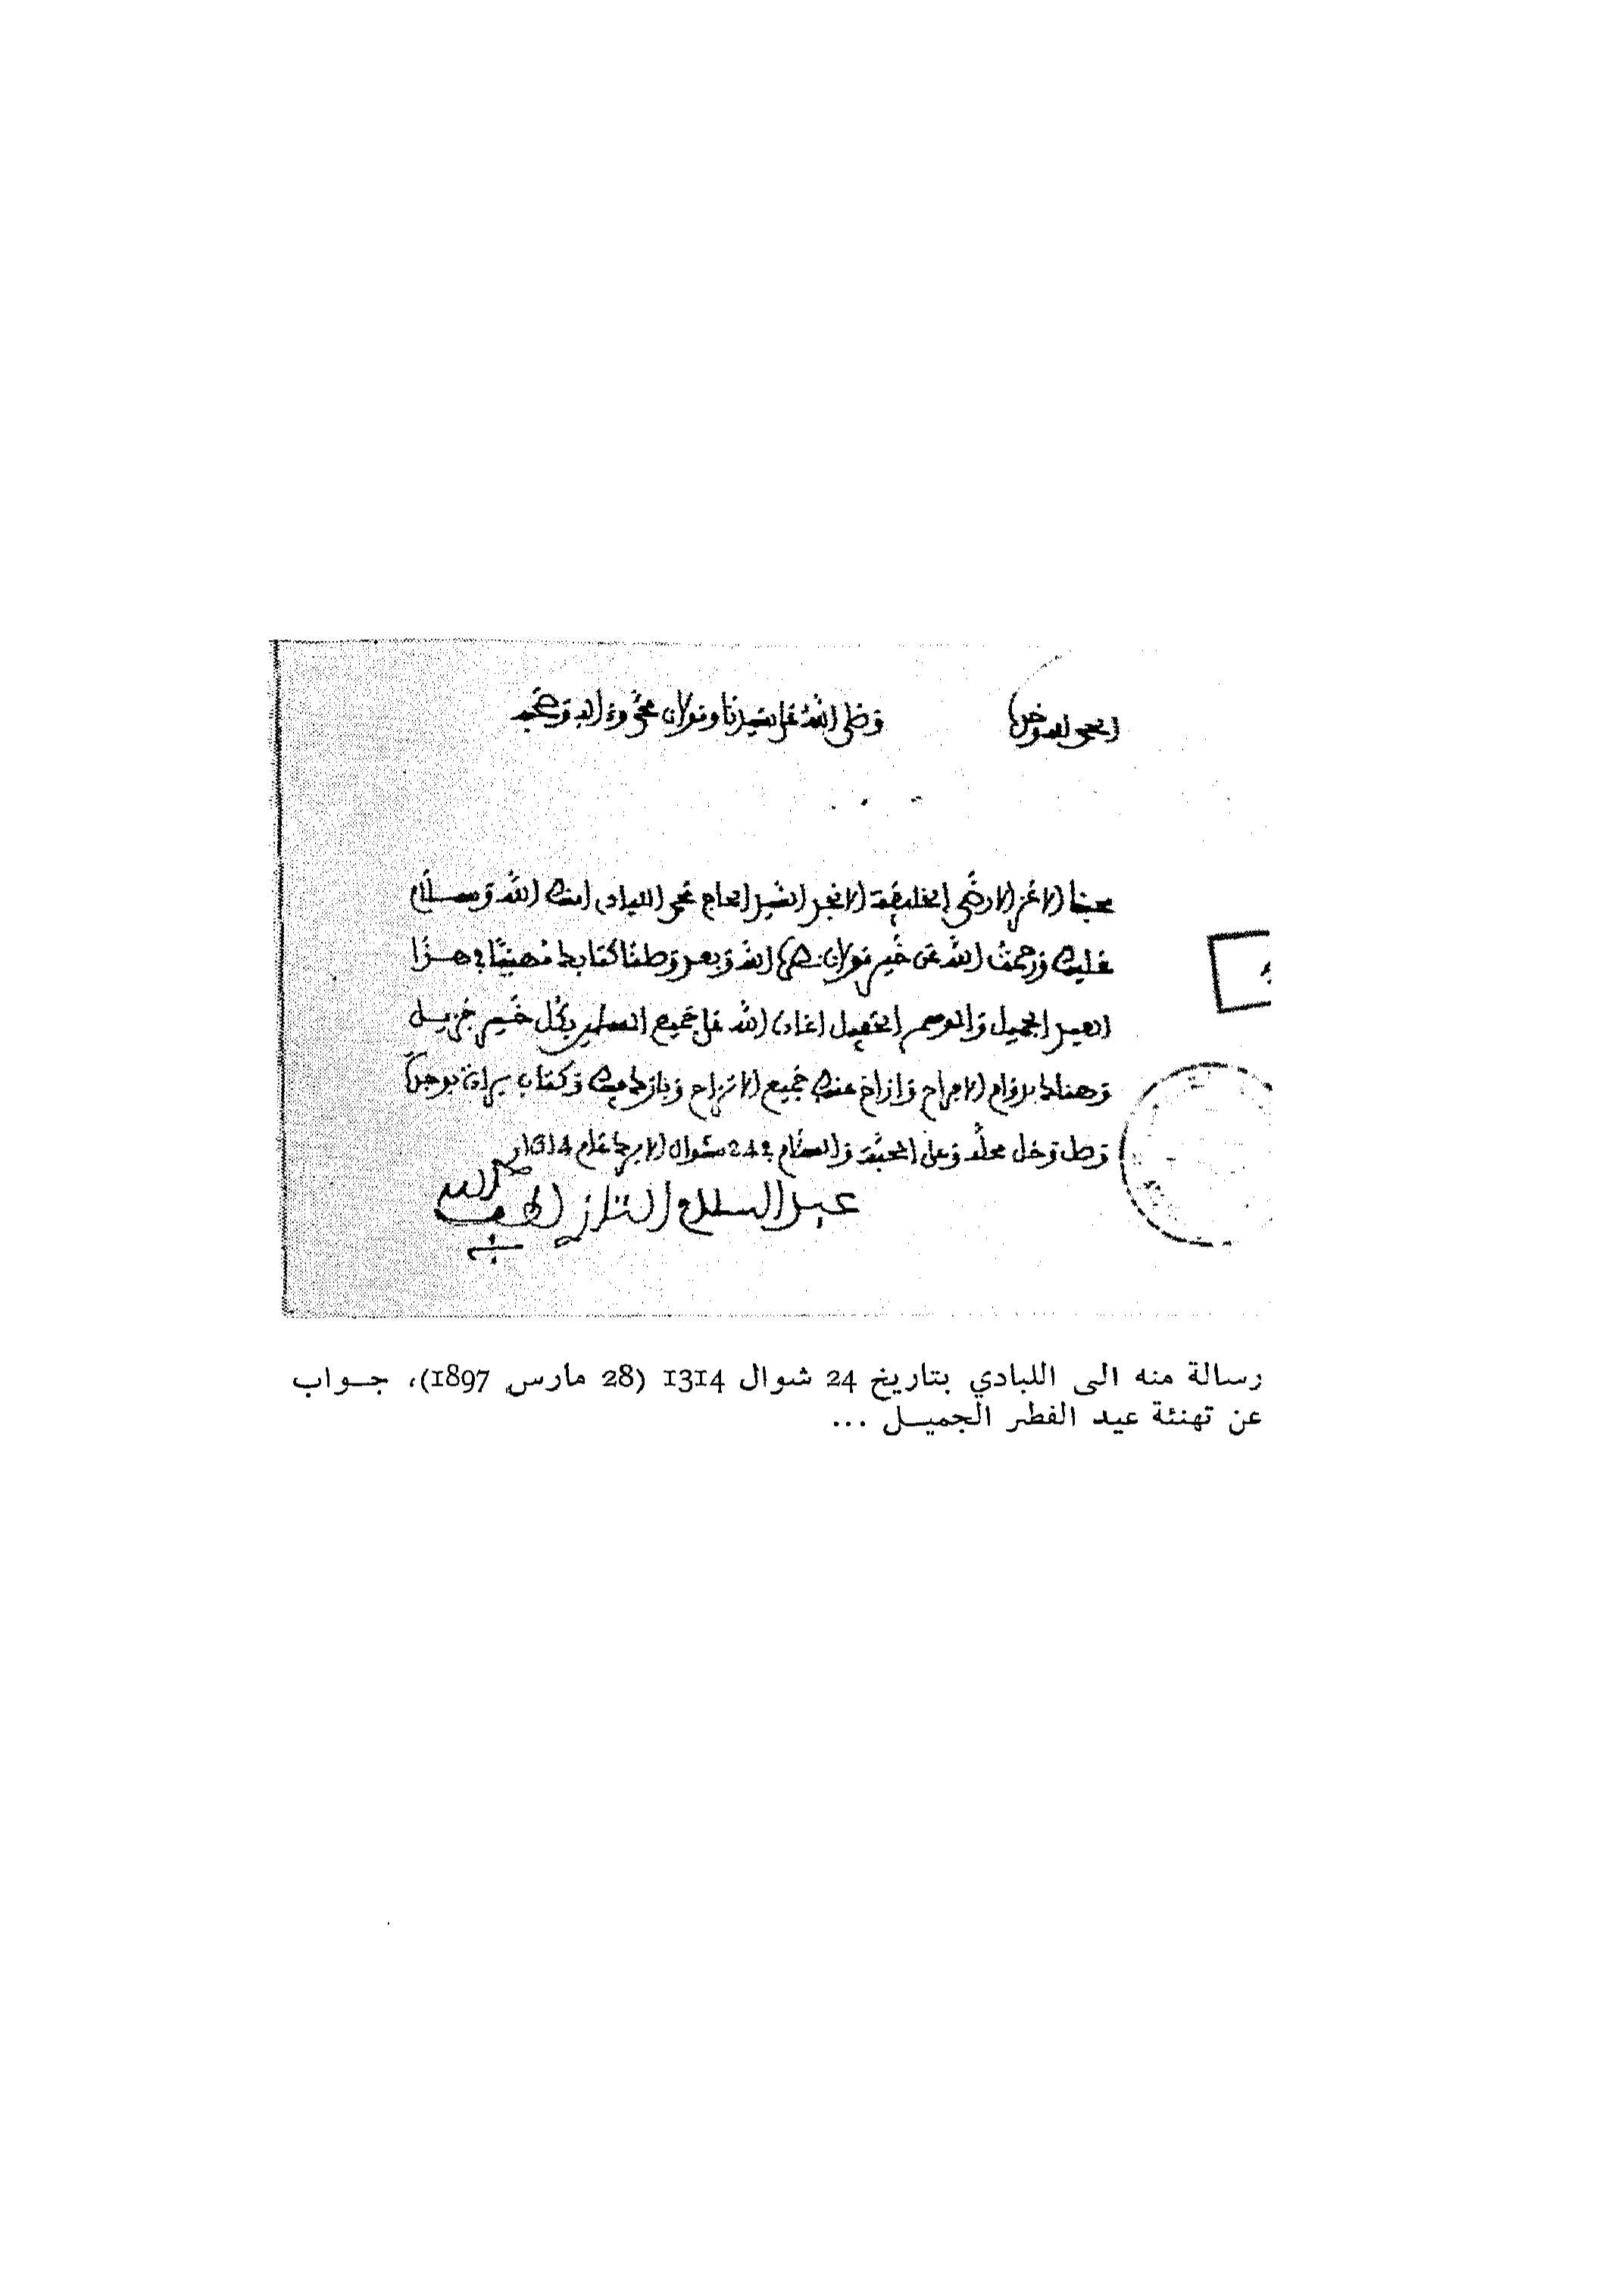 الحمد لله وحده
وصلى الله على سيدنا ومولانا محمد وءاله وصحبه
محبنا الاعز الارضى الخليفة الانجد السيد الحاج محمد اللبادي امنك الله وسلام
عليك ورحمت الله عن خير مولانا نصره الله وبعد وصلنا كتابك مهنيا في هذا
العيد الجميل والموسم الحفيل اعاده الله على جميع المسلمين بكل خير جزيل
وهناك بدوام الافراح وازاح عنك جميع الاتراح وبارك فيك وكتاب
وصل وحل محله وعلى المحبة والسلام في 24 شوال الابرك عام 1314
عبد السلام التازي لطف الله به
رسالة منه الى اللبادي بتاريخ 24 شوال 1314 (28 مارس 1897)، جـواب
عن تهنئة عيد الفطر الجميـل ...